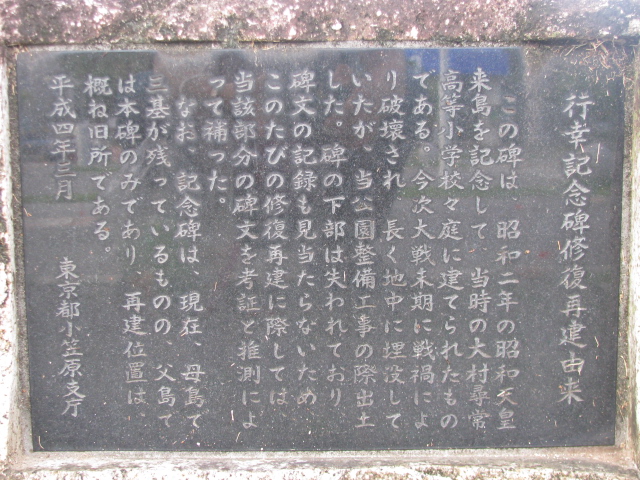 行幸記念碑修復再建由来
この碑は、昭和二年の昭和天皇
来島を記念して、当時の大村尋常
高等小学校々庭に建てられたもの
である。今次大戦末期に戦禍によ
り破壊され、長く地中に埋没して
いたが、当公園整備工事の際出土
した。碑の下部は失われており
碑文の記録も見当たらないため
このたびの修復再建に際しては
当該部分の碑文を考証と推測によ
って補った。
なお、記念碑は、現在、母島で
三基が残っているものの、父島で
は本碑のみであり、再建位置は、
概ね旧所である。
平成四年三月
東京都小笠原支庁